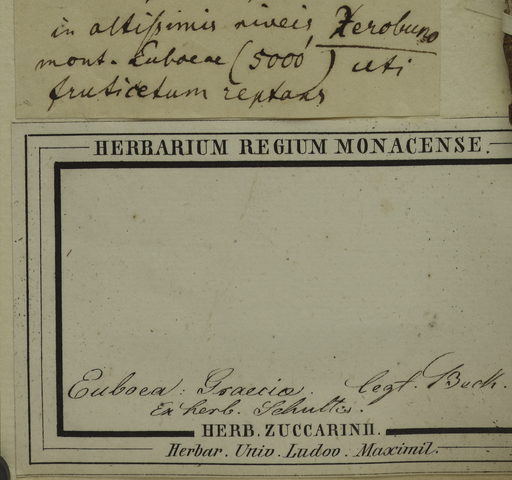 in altissimis niveis Xerobuno
mont. Euboeae (5000') uti
fruticetum reptans
HERBARIUM REGIUM MONACENSE.
Euboea. Graecia. legt. Bech.
Ex herb. Schultes.
HERB. ZUCCARINII.
Herbar. Univ. Ludov. Maximil.